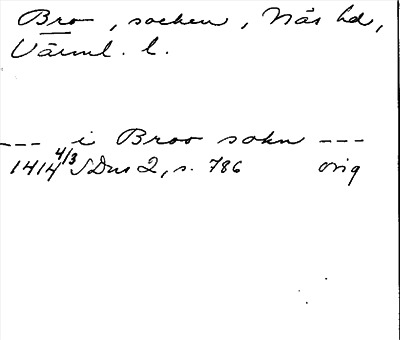 Bro, socken, Näs hd,
Värml. l.
--- i Broo sokn ---
1414 4/3 SDns 2, s. 786 orig